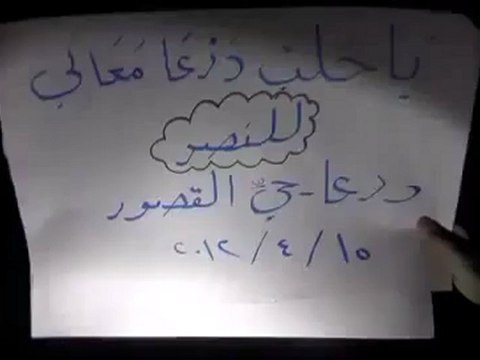 يا حلب دَرْعَا مَعَاكي
للنصر
درعا - حيّ القصور
٢٠١٢ / ٤ / ١٥